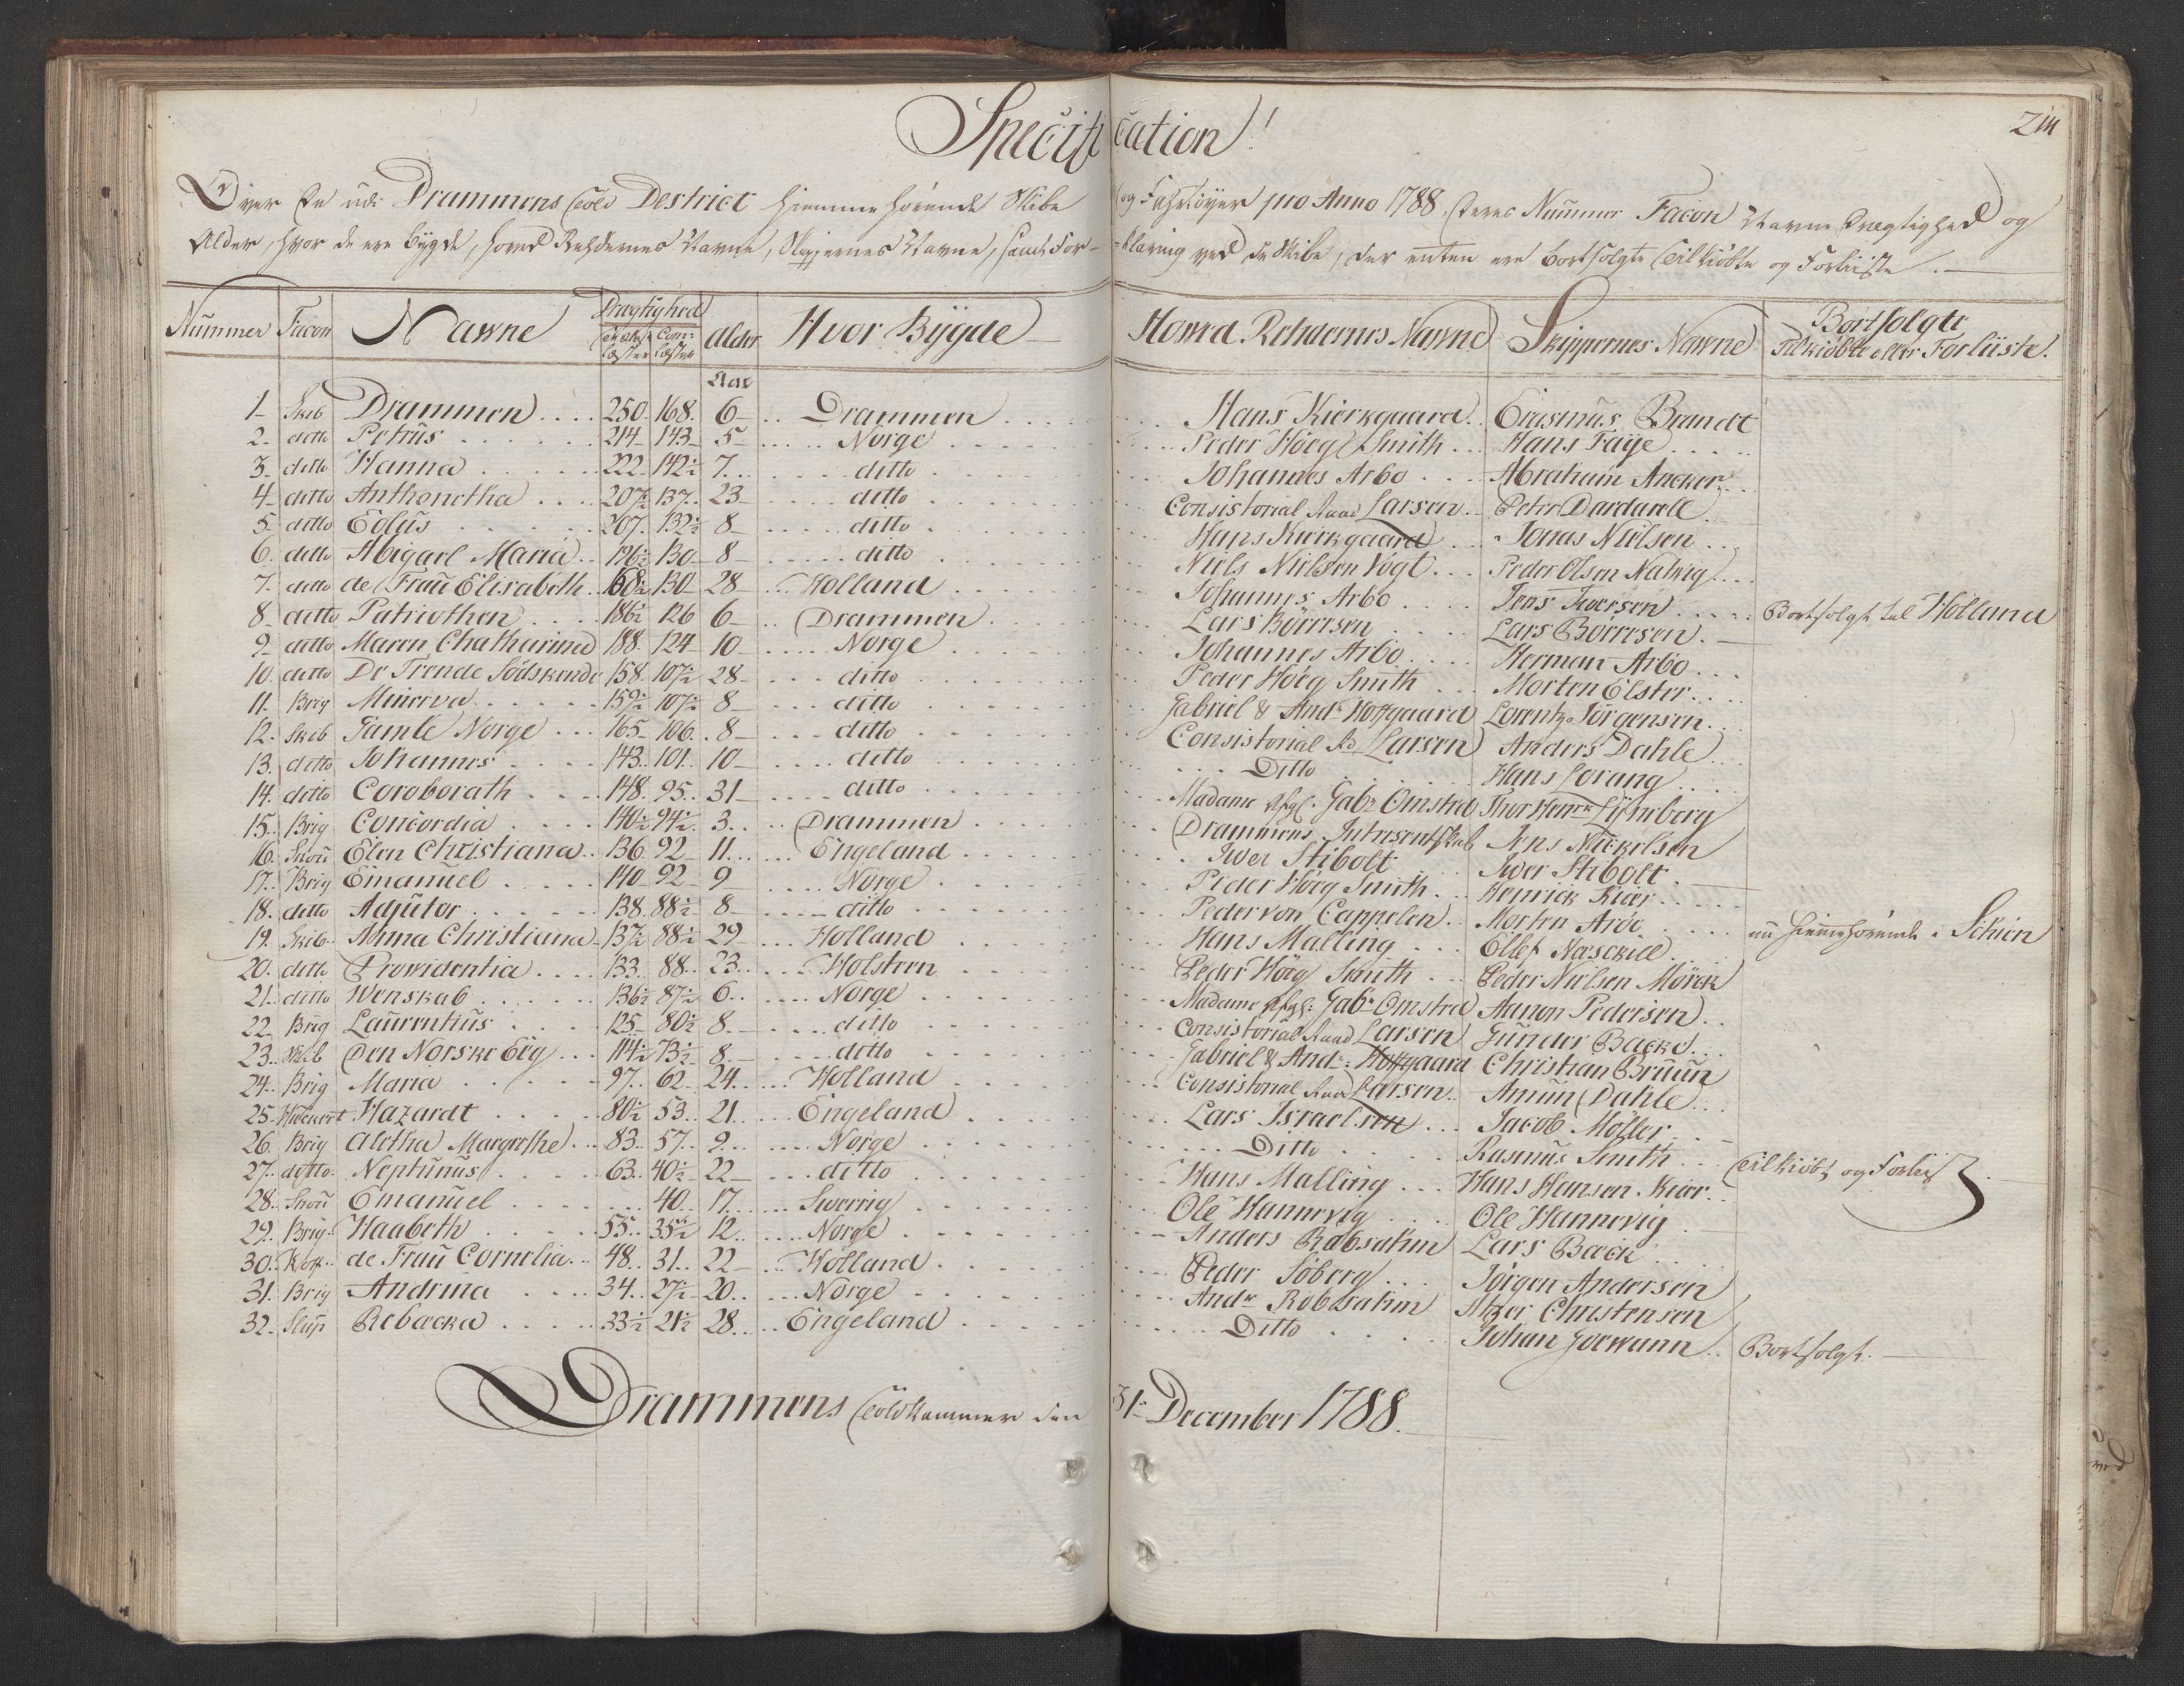 Specification!
214
Over De udi Drammens Told Destrict hiemme hørende Skibe og Fahrtøyer pro Anno 1788 deres Nummer Facon Navne Drægtighed og
Alder, hvor de ere bygde, hoved Rehdernes Navne, Skippernes Navne, samt For=klaring ved de Skibe, der enten ere bortsolgte Tilkiøbte og Forliiste.
Nummer Facon Navne Drægtighed Alder Hvor Bÿgde Hoved Rehdernes Navne Skippernes Navne Bortsolgte
læster Com: læster Tilkiøbte eller Forliiste.
Aar
1 Skib Drammen 250. 168. 6 Drammen Hans Kierkgaard Erasmus Brandt
2. ditto Petrus 214 143 5 Norge Peder Höeg Smith Hans Faÿe
3. ditto Hanna 222 142½ 7 ditto Johannes Arbo Abraham Ancker
4 ditto Anthonetha 207½ 137 23 ditto Consistorial Raad Larsen Peter Dardanell
5 ditto Eolus 207. 132½ 8 ditto Hans Kierkgaard Jonas Nielsen
6. ditto Abigael Maria 196½ 130 8 ditto Niels Nielsen Vogt Peder Olsen Natwig
7. ditto de Frau Elisabeth 168½ 130 28 Holland Johannes Arbo Jens Iversen Bortsolgt til Holland
8 ditto Patriothen 186½ 126 6 Drammen Lars Börresen Lars Börresen
9 ditto Maren Chatharina 188. 124 10 Norge Johannes Arbo Herman Arbo
10. ditto De Trende Södskende 158 107½ 28 ditto Peder Höeg Smith Morten Elster
11. Brig Minerva 159½ 107½ 8 ditto Gabriel & Andr Hofgaard Lorentz Jörgensen
12. Skib Gamle Norge 165 106. 8 ditto Consistorial Rd Larsen Anders Dahle
13. ditto Johannes 143 101 10 ditto Ditto Hans Lorang
14. ditto Coroborath 148. 95. 31 ditto Madame Afgl. Gabr Omsted Thor Henr
15. Brig Concordia 140½ 94½ 3 Drammen Drammens Intresentskab Jens Mickelsen
16. Snou Elen Christiana 136 92 11 Engeland Iver Stibolt Iver Stibolt
17. Brig Emanuel 140 92 9 Norge Peder Höeg Smith Henrick Kiær
18. ditto Adjutor 138 88½ 8 ditto Peder von Cappelen Morten Arbo nu hiemmehørende i Schien
19. Skib Anna Christiana 137½ 88½ 29 Holland Hans Malling Ellef Næsekild
20. ditto Prowidentia 133 88 23 Holsteen Peder Höeg Smith Peder Nielsen Mörck
21. ditto Wenskab 136½ 87½ 6 Norge Madame Afgl: Gabr Omsted Aanon Pedersen
22 Brig Laurentius 125 80½ 8 ditto Consistorial Raad Larsen Gunder Backe
23. Skib Den Norske Eeg 114½ 73½ 8 ditto Gabriel & Andr: Hofgaard Christian Bruun
24. Brig Maria 97. 62 24 Holland Consistorial Raad Larsen Amun Dahle
25. Huckert Hazardt 80½ 53. 21 Engeland Lars Israelsen Jacob Möller
26. Brig Aletha Margrethe 83. 57. 9 Norge Ditto Rasmus Smith Tilkiøbt og Forliist
27. ditto Neptunus 63. 40½ 22 ditto Hans Malling Hans Hansen Kiær
28. Snou Emanuel 40. 17 Swerrig Ole Hannevig Ole Hannevig
29. Brig Haabeth 55 35½ 12 Norge Anders Robsahm Lars Bæck
30. de Frau Cornelia 48. 31. 22 Holland Peder Söberg Jörgen Andersen
31. Brig Andrina 34. 27½ 20 Norge Andr Robsahm Atzer Christensen
32. Slup Rebæcka 33½ 21½ 28 Engeland Ditto Johan Bortsolgt.
Drammens Toldkammer den 31 December 1788.